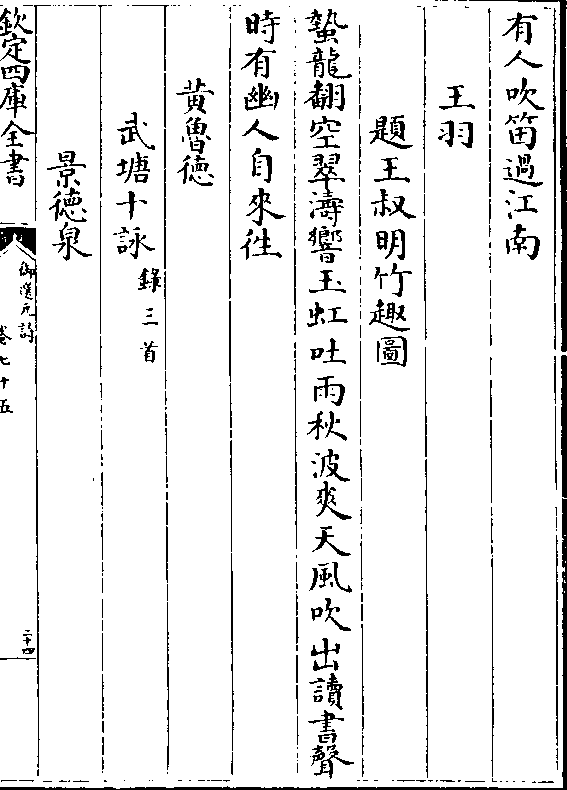 有人吹笛過江南
王羽
題王叔明竹趣圖
蟄龍翻空翠濤響玉虹吐雨秋波爽天風吹出讀書聲
時有幽人自來徃
黄魯徳
武塘十詠錄三首
景徳泉
欽定四庫全書
御選元詩
卷七十五
二十四